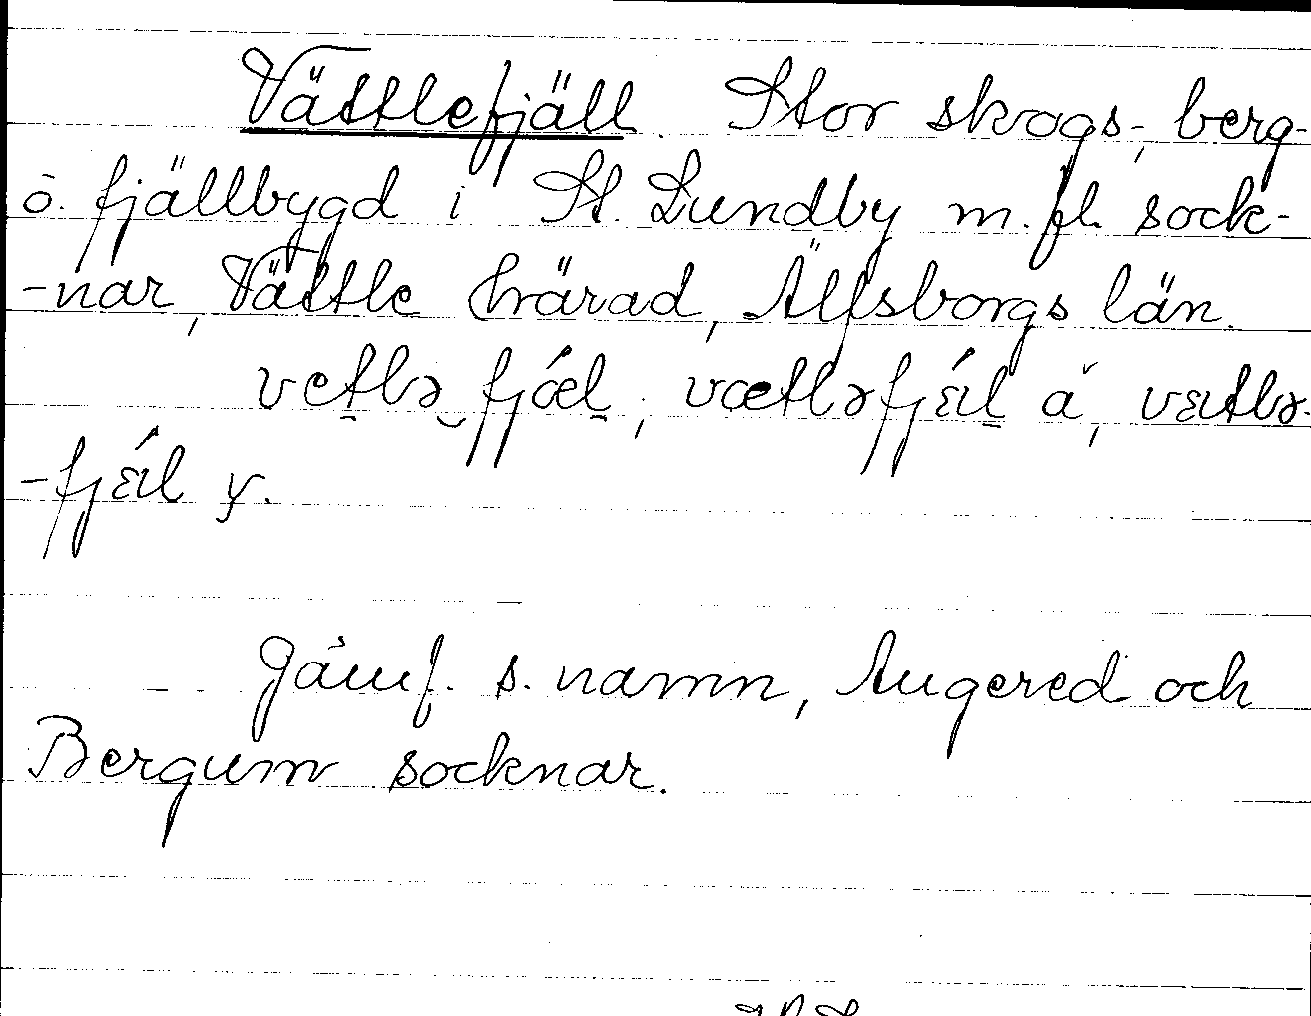 Vättlefjäll. Stor skogs-, berg-
o. fjällbygd i St. Lundby m. fl. sock-
-nar, Vättle härad, Älfsborgs län.
vetlə fjæl, vætləfjɛ́l ä, vɛtlə-
-fjɛ́l y.
Jämf. s. namn, Angered och
Bergum socknar.